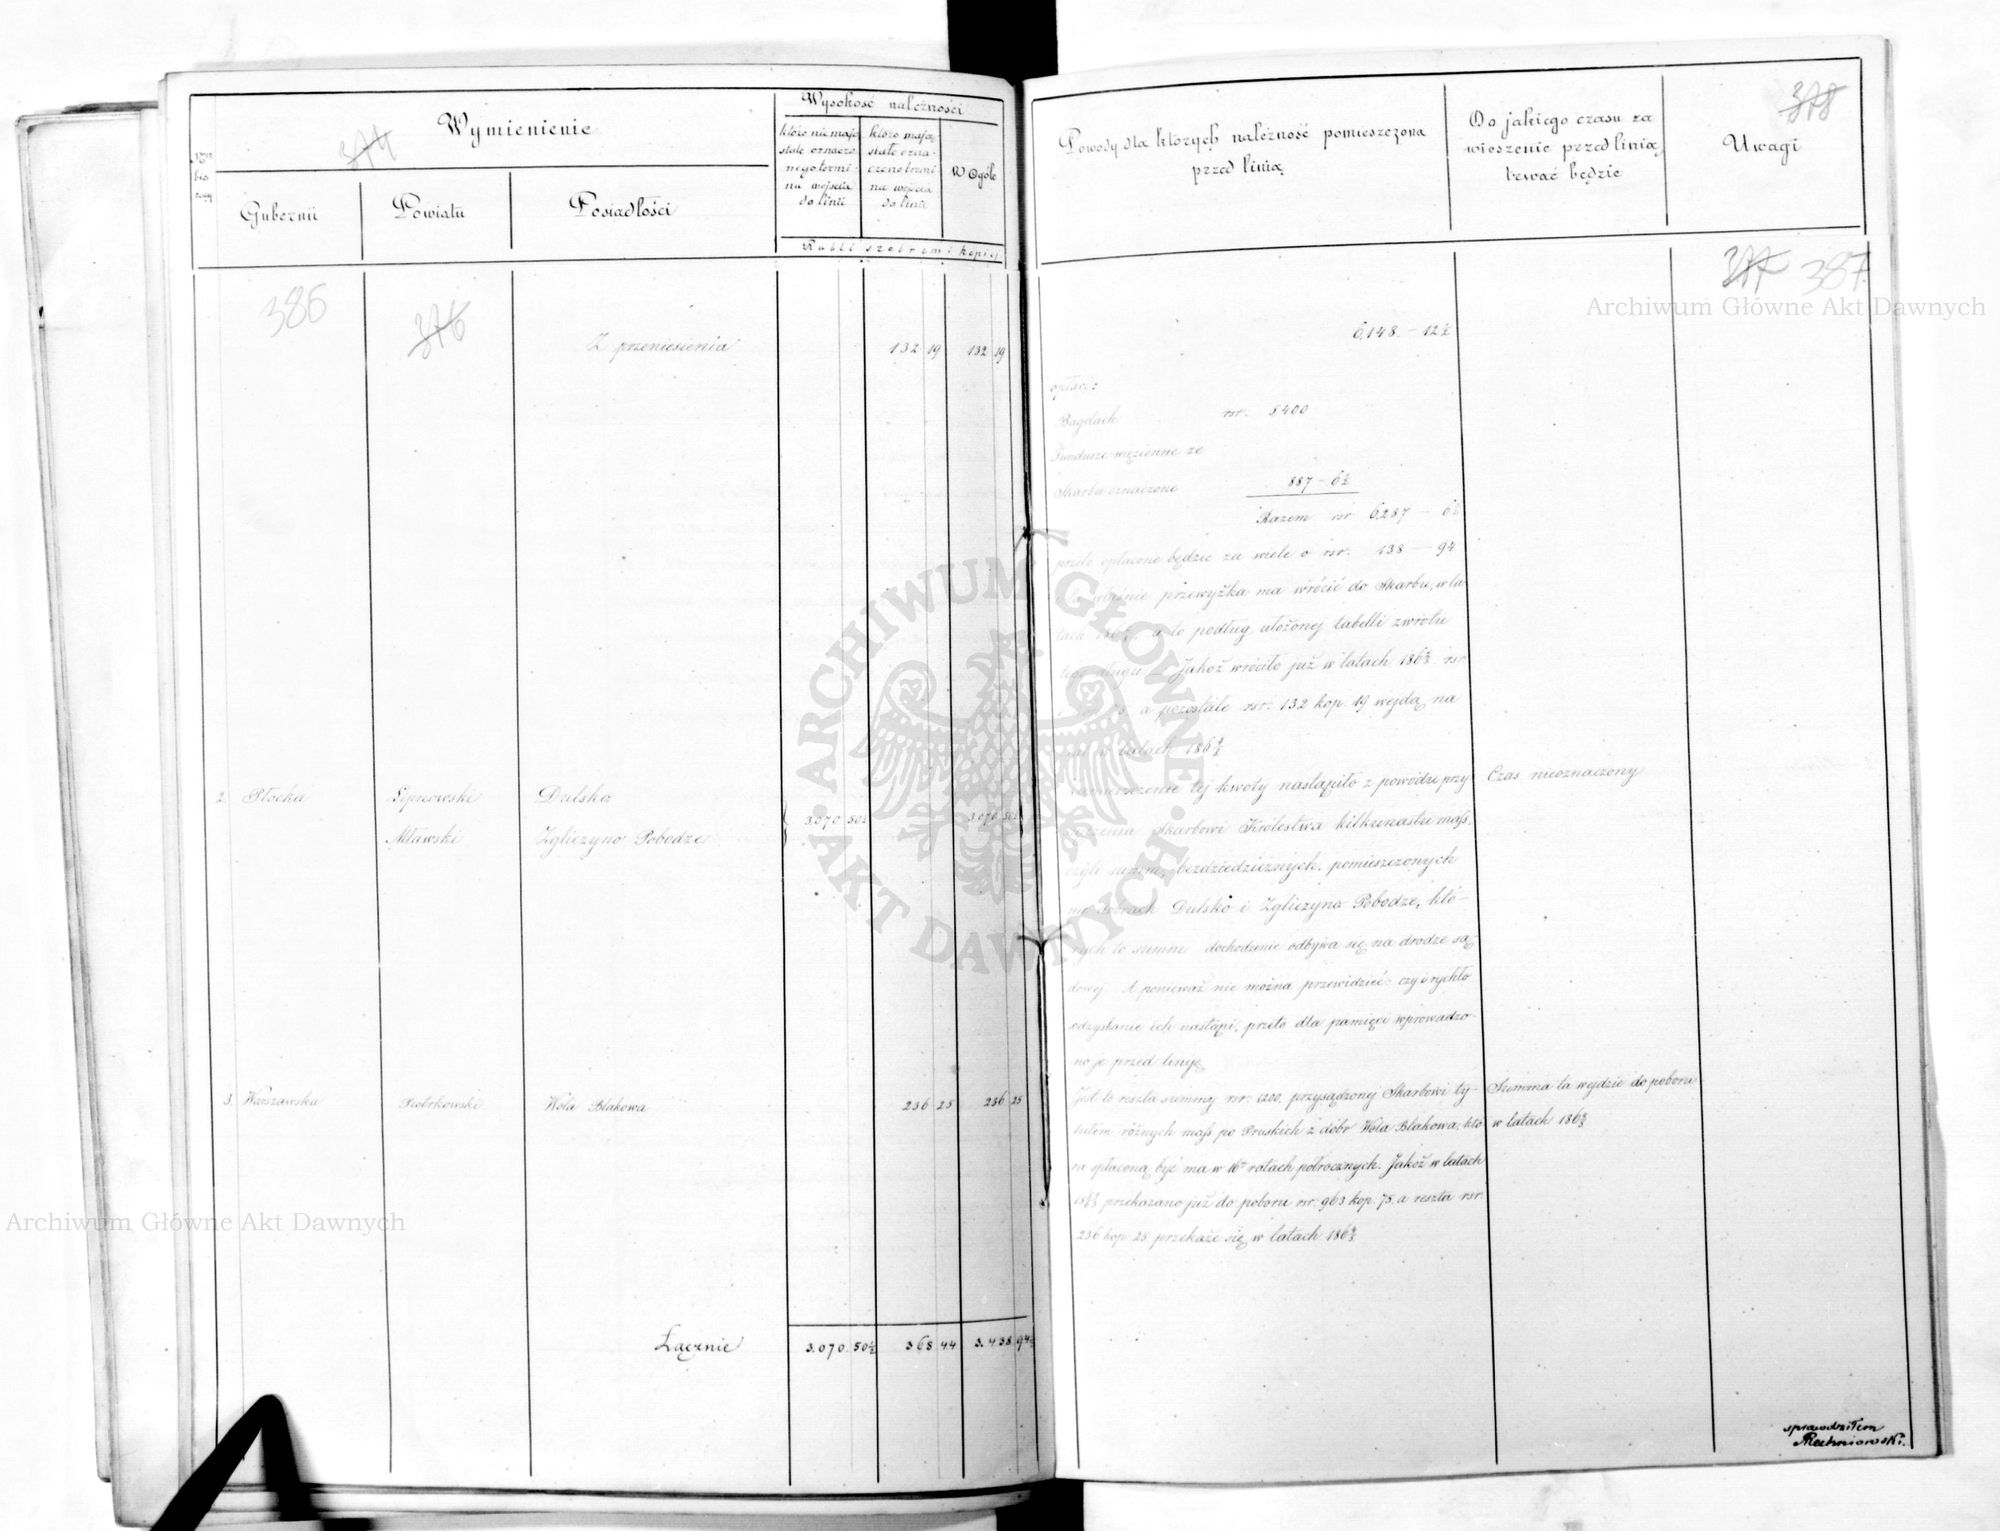 374
Wymienienie
Gubernii
Powiatu
Posiadłości
Wysokość należności
które nie mają
stale oznaczo-
nego termi-
nu wejścia
do linii
które mają
stałe ozna-
czone termi
na wejścia
do linii
W Ogóle
Rubli srebrem i kopiej
386
376
Z przeniesienia 132 19 132 19
2. Płocka Lipnowski Dulsko
Mławski Zgliczyno Pobodze 3.070 50½ 3.070 50½
3. Warszawska Piotrkowski Wola Blakowa 236 25 236 25
Łącznie 3.070. 50½ 368 44 3.438 94½
378
Powody dla których należność pomieszczona
przed linią
Do jakiego czasu za
wieszenie przed linią
trwać będzie
Uwagi
377 387
6,148. – 12½
opłaci:
Bagdach rsr. 5400
Fundusze więzienne ze
Skarbu oznaczone 887 – 6½
Razem rsr 6,287 – 6½
przeto opłacone będzie za wiele o rsr. 138 – 94
przewyżka ma wrócić do Skarbu, w la
tach a to podług ułożonej tabelli zwrotu
tego długu Jakoż wróciło już w latach rsr.
a pozostałe rsr: 132 kop. 19 wejdą na
w latach
umieszczenie tej kwoty nastąpiło z powodu przy
sądzenia Skarbowi Królestwa kilkunastu mass,
czyli summ, bezdziedzicznych, pomieszczonych
na dobrach Dulsko i Zgliczyno Pobodze, któ-
rych to summ dochodzenie odbywa się na drodze są-
dowej. A ponieważ nie można przewidzieć: czy i rychło
odzyskanie ich nastąpi, przeto dla pamięci wprowadzo-
no je przed linię
Czas nieoznaczony
Jest to reszta summy rsr: 1200, przysądzonej Skarbowi ty-
tułem różnych mass po Pruskich z dóbr Wola Blakowa, któ
ra opłaconą być ma w 16tu ratach półrocznych. Jakoż w latach
przekazano już do poboru rsr 963 kop. 75. a reszta rsr.
236 kop 25 przekaże się w latach
Summa ta wejdzie do poboru
w latach
sprawdziłem
Archiwum Główne Akt Dawnych
Archiwum Główne Akt Dawnych
ARCHIWUM GŁÓWNE
AKT DAWNYCH